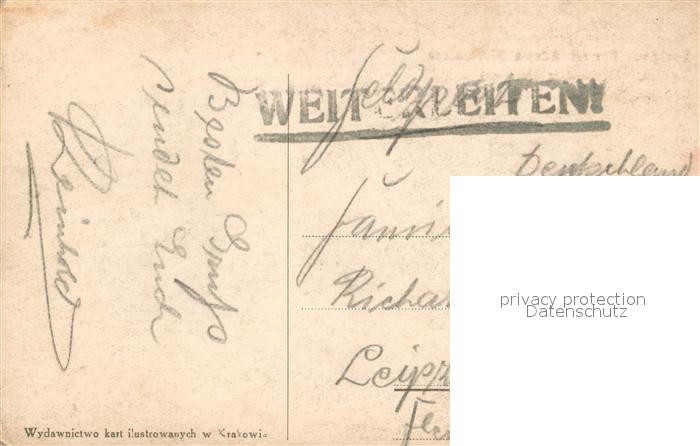 Besten Gruß
sendet Euch
Reinhold
WEITERLEITEN!
Feldpost
Deutschland
Richa
Leipz
privacy protection
Datenschutz
Wydawnictwo kart ilustrowanych w Krakowie